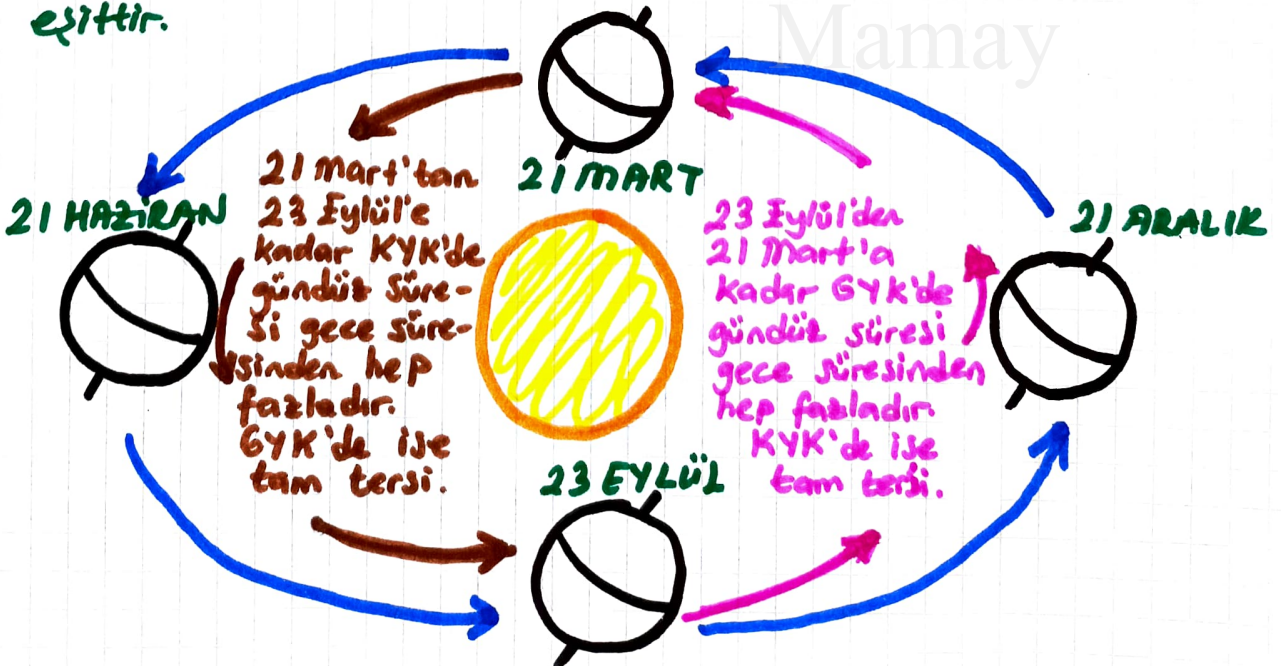 eşittir.
Mamay
21 MART
21 HAZİRAN
21 ARALIK
23 EYLÜL
21 Mart'tan
23 Eylül'e
kadar KYK'de
gündüz süre-
si gece süre-
sinden hep
fazladır.
GYK'de ise
tam tersi.
23 Eylül'den
21 Mart'a
kadar GYK'de
gündüz süresi
gece süresinden
hep fazladır.
KYK'de ise
tam tersi.